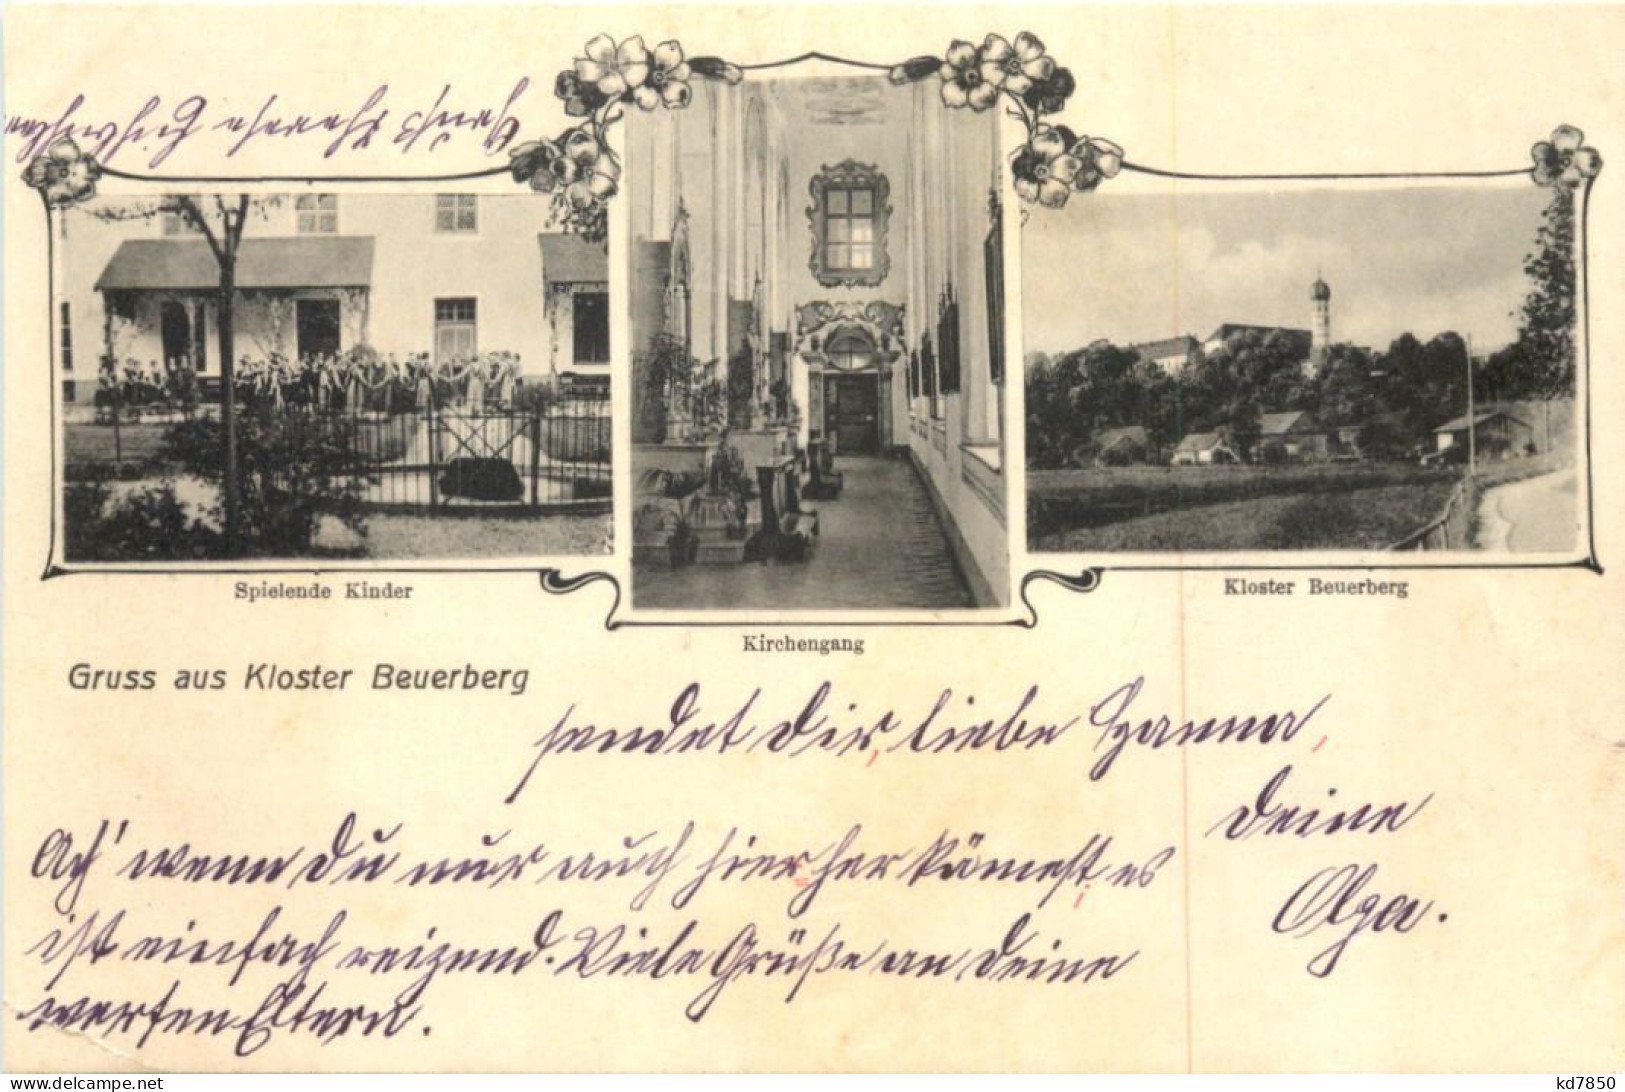 Spielende Kinder
Kirchengang
Kloster Beuerberg
Gruss aus Kloster Beuerberg
sendet Dir, liebe Hanna,
Deine
Olga.
Ach! wenn Du nur auch hierher kämest, es
ist einfach reizend. Viele Grüße an Deine
werten Eltern.
www.delcampe.net
kd7850